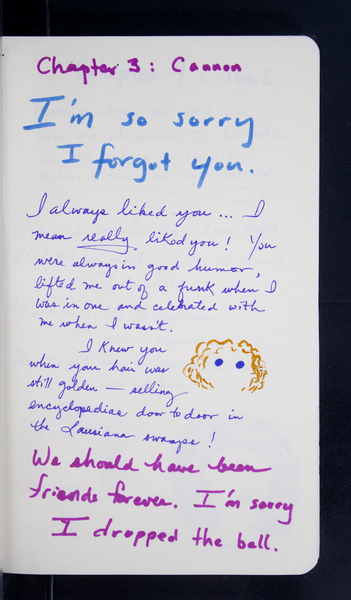 Chapter 3: Cannon
I'm so sorry
I forgot you.
I always liked you ... I
mean really liked you! You
were always in good humor,
lifted me out of a funk when I
was in one and celebrated with
me when I wasn't.
I knew you
when your hair was
still golden — selling
encyclopediae door to door in
the Lousiana swamps!
We should have been
friends forever. I'm sorry
I dropped the ball.